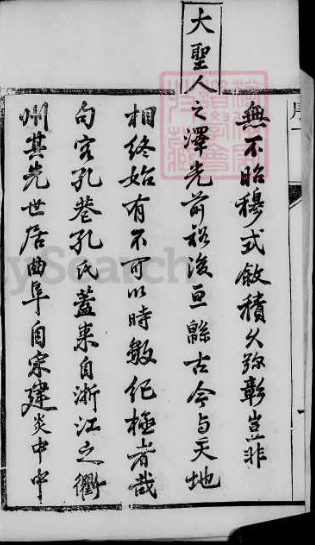 無不昭穆式敘積久彌彰豈非
大聖人之澤光前裕後亘緜古今与天地
相終始有不可以時數紀極者哉
句容孔巷孔氏蓋來自浙江之衢
州其先世居曲阜自宋建炎中中